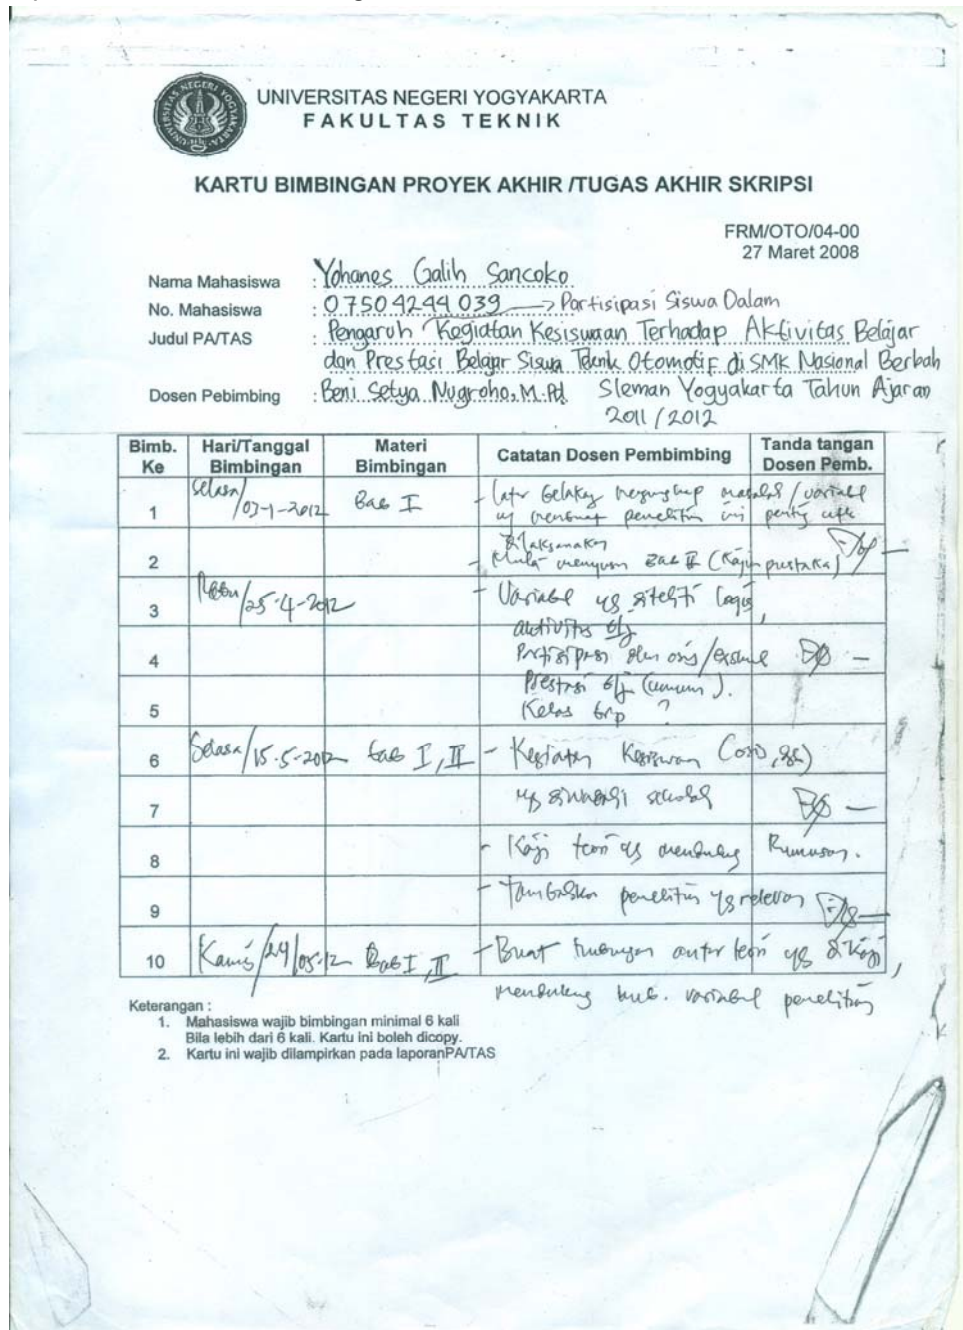 UNIVERSITAS NEGERI YOGYAKARTA
FAKULTAS TEKNIK
KARTU BIMBINGAN PROYEK AKHIR /TUGAS AKHIR SKRIPSI
FRM/OTO/04-00
27 Maret 2008
Nama Mahasiswa : Yohanes Galih Sancoko
No. Mahasiswa : 07504244039 → Partisipasi Siswa Dalam
Judul PA/TAS : Pengaruh Kegiatan Kesiswaan Terhadap Aktivitas Belajar
dan Prestasi Belajar Siswa Teknik Otomotif di SMK Nasional Berbah
Dosen Pebimbing : Beni Setya Nugroho, M.Pd. Sleman Yogyakarta Tahun Ajaran
2011/2012
Bimb. Ke Hari/Tanggal Bimbingan Materi Bimbingan Catatan Dosen Pembimbing Tanda tangan Dosen Pemb.
1 Selasa/03-1-2012 Bab I - Latar belakang mengungkap masalah/variabel
yg membuat penelitian ini penting utk
dilaksanakan
2 - Mulai menyusun Bab II (Kajian pustaka)
3 Rabu/25-4-2012 - Variabel yg diteliti lagi,
aktivitas blj
4 Partisipasi dlm osis/
Prestasi blj (umum).
5 Kelas brp ?
6 Selasa/15-5-2012 Bab I, II - Kegiatan Kesiswaan
7 yg sekolah
8 - Kaji teori yg mendukung Rumusan.
9 - Tambahkan penelitian yg relevan
10 Kamis/24/05-12 Bab I, II - Buat hubungan antar teori yg dikaji,
mendukung hub. variabel penelitian
Keterangan :
1. Mahasiswa wajib bimbingan minimal 6 kali
Bila lebih dari 6 kali. Kartu ini boleh dicopy.
2. Kartu ini wajib dilampirkan pada laporanPA/TAS